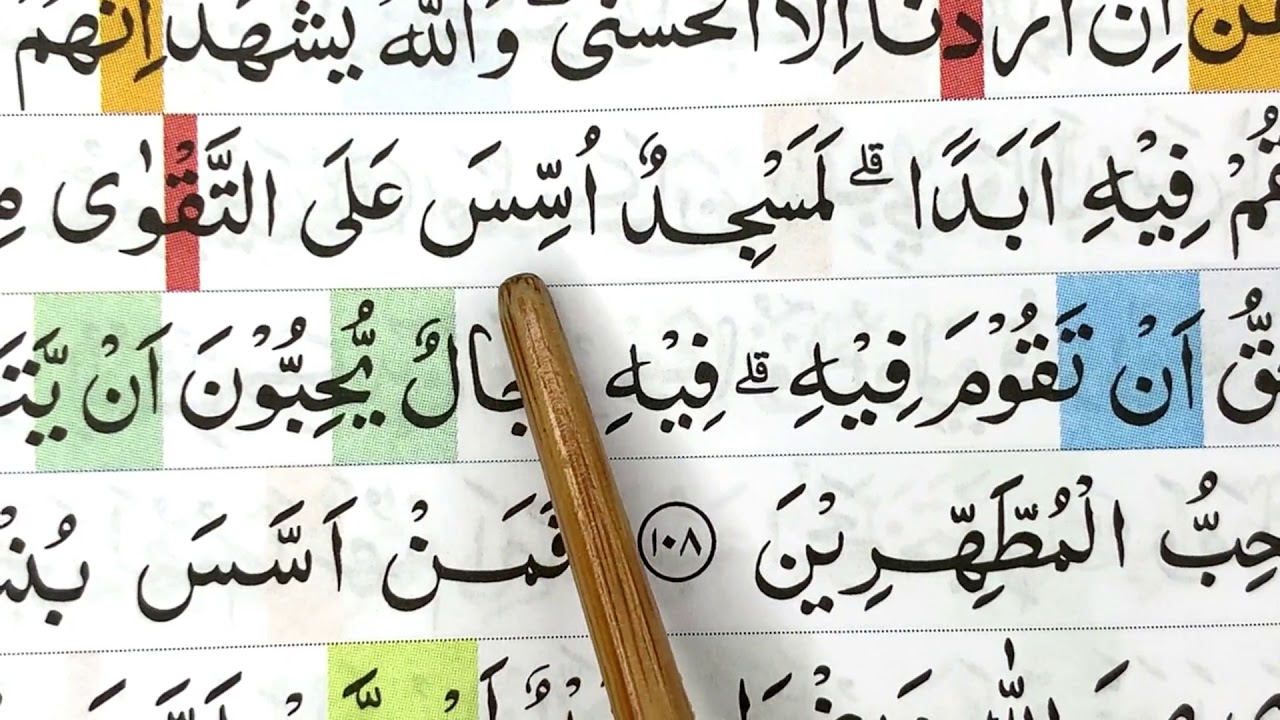 اِنْ اَرَدْنَا اِلَّا الْحُسْنٰى ۗ وَاللّٰهُ يَشْهَدُ اِنَّهُمْ
فِيْهِ اَبَدًا ۗ لَمَسْجِدٌ اُسِّسَ عَلَى التَّقْوٰى
اَنْ تَقُوْمَ فِيْهِ ۗ فِيْهِ جَالٌ يُّحِبُّوْنَ اَنْ يَّتَ
حِبُّ الْمُطَّهِّرِيْنَ ١٠٨ فَمَنْ اَسَّسَ بُنْ